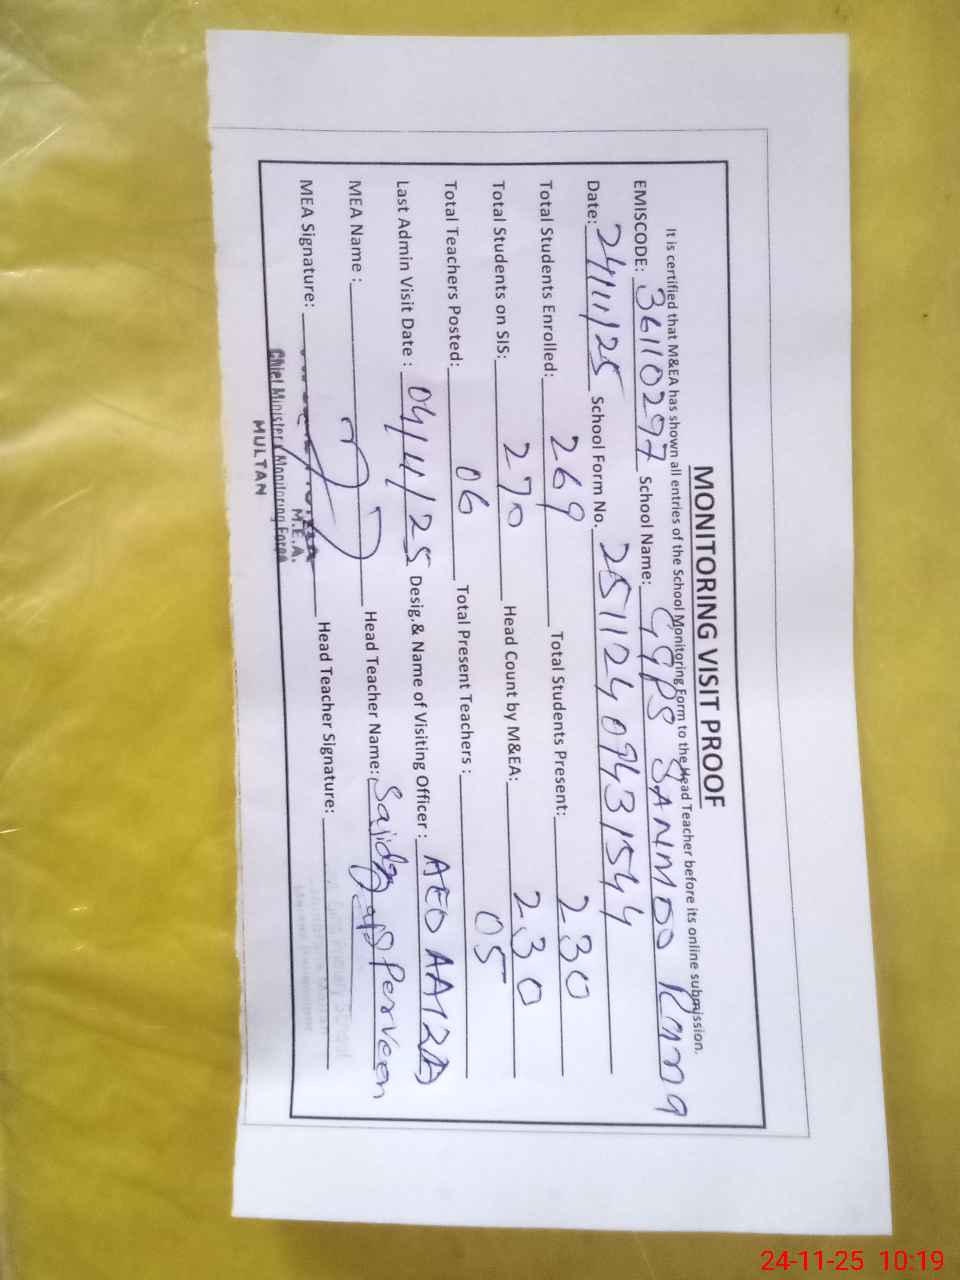 MONITORING VISIT PROOF
It is certified that M&EA has shown all entries of the School Monitoring Form to the Head Teacher before its online submission.
EMISCODE: 36110297 School Name: GGPS SANMOO Rana
Date: 24/11/25 School Form No. 25112409431544
Total Students Enrolled: 269 Total Students Present: 230
Total Students on SIS: 270 Head Count by M&EA: 230
Total Teachers Posted: 06 Total Present Teachers: 05
Last Admin Visit Date : 04/11/25 Desig.& Name of Visiting Officer : AEO
MEA Name : Head Teacher Name: Sajida Perveen
MEA Signature: Head Teacher Signature:
M.E.A.
Chief Minister's Monitoring Force
MULTAN
24-11-25 10:19